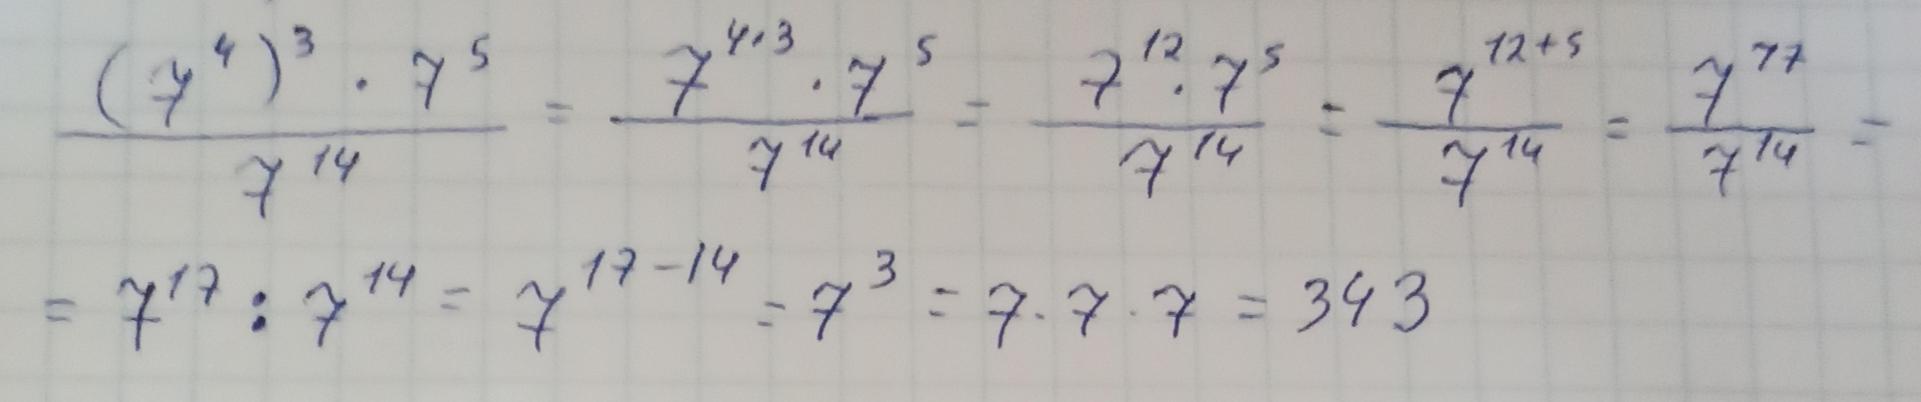 (7⁴)³ · 7⁵ / 7¹⁴ = 7⁴·³ · 7⁵ / 7¹⁴ = 7¹² · 7⁵ / 7¹⁴ = 7¹²⁺⁵ / 7¹⁴ = 7¹⁷ / 7¹⁴ =
= 7¹⁷ : 7¹⁴ = 7¹⁷⁻¹⁴ = 7³ = 7 · 7 · 7 = 343